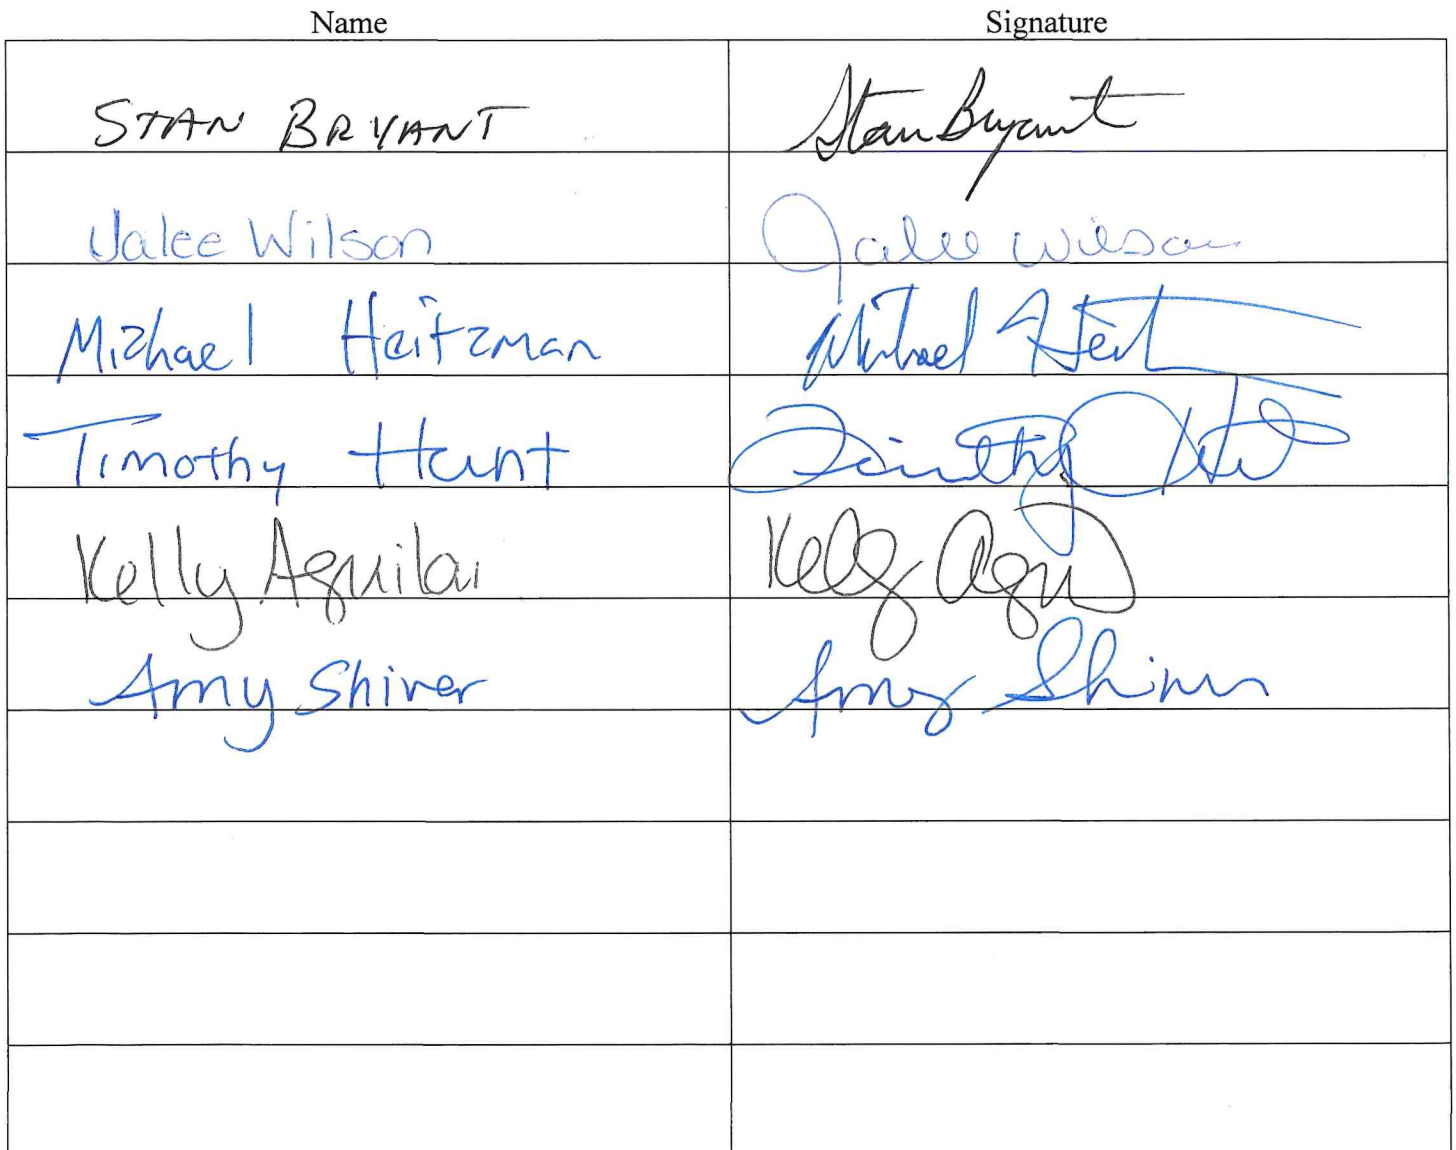 Name Signature
STAN BRYANT Stan Bryant
Jalee Wilson Jalee Wilson
Michael Heitzman Michael Heit
Timothy Hunt Timothy Hunt
Kelly Aguilar Kelly Agu
Amy Shiner Amy Shiner